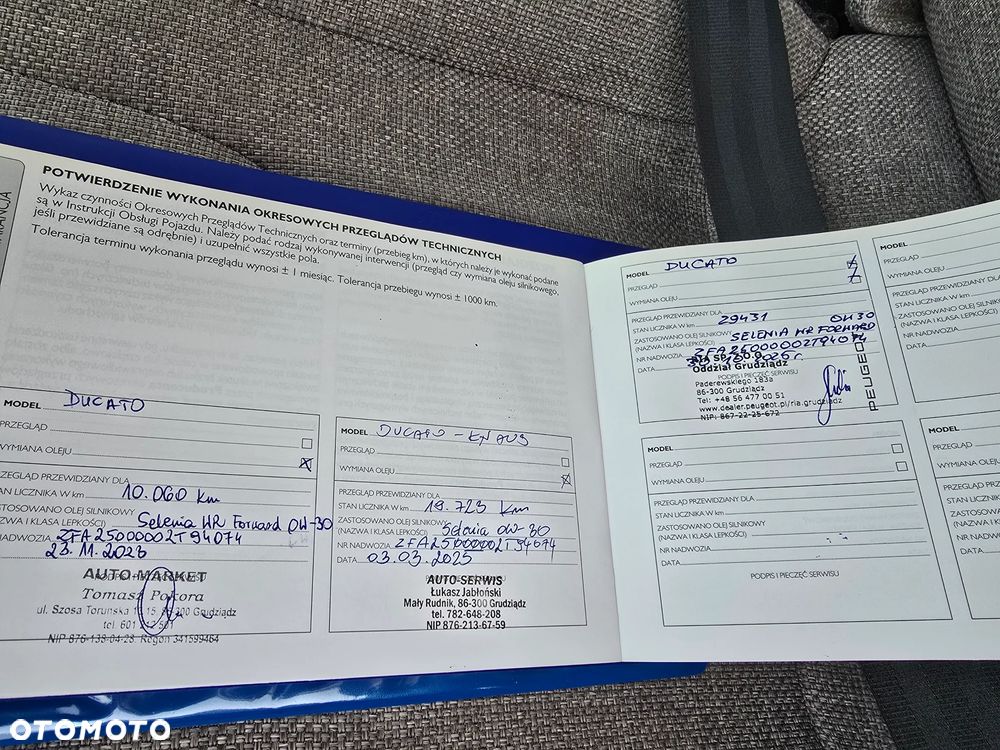 GWARANCJA
POTWIERDZENIE WYKONANIA OKRESOWYCH PRZEGLĄDÓW TECHNICZNYCH
Wykaz czynności Okresowych Przeglądów Technicznych oraz terminy (przebieg km), w których należy je wykonać podane
są w Instrukcji Obsługi Pojazdu. Należy podać rodzaj wykonywanej interwencji (przegląd czy wymiana oleju silnikowego,
jeśli przewidziane są odrębnie) i uzupełnić wszystkie pola.
Tolerancja terminu wykonania przeglądu wynosi ± 1 miesiąc. Tolerancja przebiegu wynosi ± 1000 km.
MODEL DUCATO
PRZEGLĄD
WYMIANA OLEJU X
PRZEGLĄD PRZEWIDZIANY DLA
STAN LICZNIKA W km 10.060 km
ZASTOSOWANO OLEJ SILNIKOWY
(NAZWA I KLASA LEPKOŚCI) Selenia WR Forward 0W-30
NR NADWOZIA ZFA25000002T94074
DATA 23.11.2023
AUTO-MARKET
Tomasz Pokora
ul. Szosa Toruńska 15, 86-300 Grudziądz
tel. 601
NIP 876-138-04-28, Regon 341599464
MODEL DUCATO - KNAUS
PRZEGLĄD
WYMIANA OLEJU X
PRZEGLĄD PRZEWIDZIANY DLA
STAN LICZNIKA W km 19.723 km
ZASTOSOWANO OLEJ SILNIKOWY
(NAZWA I KLASA LEPKOŚCI) Selenia 0W-30
NR NADWOZIA ZFA25000002T94074
DATA 03.03.2025
AUTO-SERWIS
Łukasz Jabłoński
Mały Rudnik, 86-300 Grudziądz
tel. 782-648-208
NIP 876-213-67-59
MODEL DUCATO
PRZEGLĄD
WYMIANA OLEJU
PRZEGLĄD PRZEWIDZIANY DLA
STAN LICZNIKA W km 29431
ZASTOSOWANO OLEJ SILNIKOWY 0W30
(NAZWA I KLASA LEPKOŚCI) SELENIA WR FORWARD
NR NADWOZIA ZFA25000002T94074
DATA
RIA SP. Z O.O.
Oddział Grudziądz
PODPIS I PIECZĘĆ SERWISU
Paderewskiego 183a
86-300 Grudziądz
Tel: +48 56 477 00 51
www.dealer.peugeot.pl/ria.grudziadz
NIP: 867-22-25-672
PEUGEOT
MODEL
PRZEGLĄD
WYMIANA OLEJU
PRZEGLĄD PRZEWIDZIANY DLA
STAN LICZNIKA W km
ZASTOSOWANO OLEJ SILNIKOWY
(NAZWA I KLASA LEPKOŚCI)
NR NADWOZIA
DATA
PODPIS I PIECZĘĆ SERWISU
MODEL
PRZEGLĄD
WYMIANA OLEJU
PRZEGLĄD PRZEWIDZIANY
STAN LICZNIKA W km
ZASTOSOWANO OLEJ
(NAZWA I KLASA LEPKOŚCI)
NR NADWOZIA
DATA
MODEL
PRZEGLĄD
WYMIANA OLEJU
PRZEGLĄD PRZEW
STAN LICZNIKA
ZASTOSOWANO
(NAZWA I KLASA
NR NADWOZIA
DATA
OTOMOTO